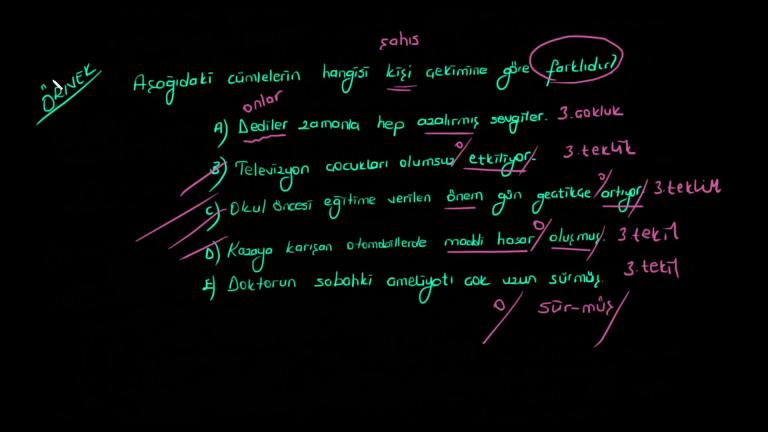 şahıs
ÖRNEK Aşağıdaki cümlelerin hangisi kişi çekimine göre farklıdır?
onlar
A) Dediler zamanla hep azalırmış sevgiler. 3. çokluk
B) Televizyon çocukları olumsuz O/ etkiliyor. 3. teklik
C) Okul öncesi eğitime verilen önem gün geçtikçe O/ artıyor 3. teklik
D) Kazaya karışan otomobillerde maddi hasar O/ oluşmuş. 3. tekil
E) Doktorun sabahki ameliyatı çok uzun sürmüş. 3. tekil
O/ sür-müş/